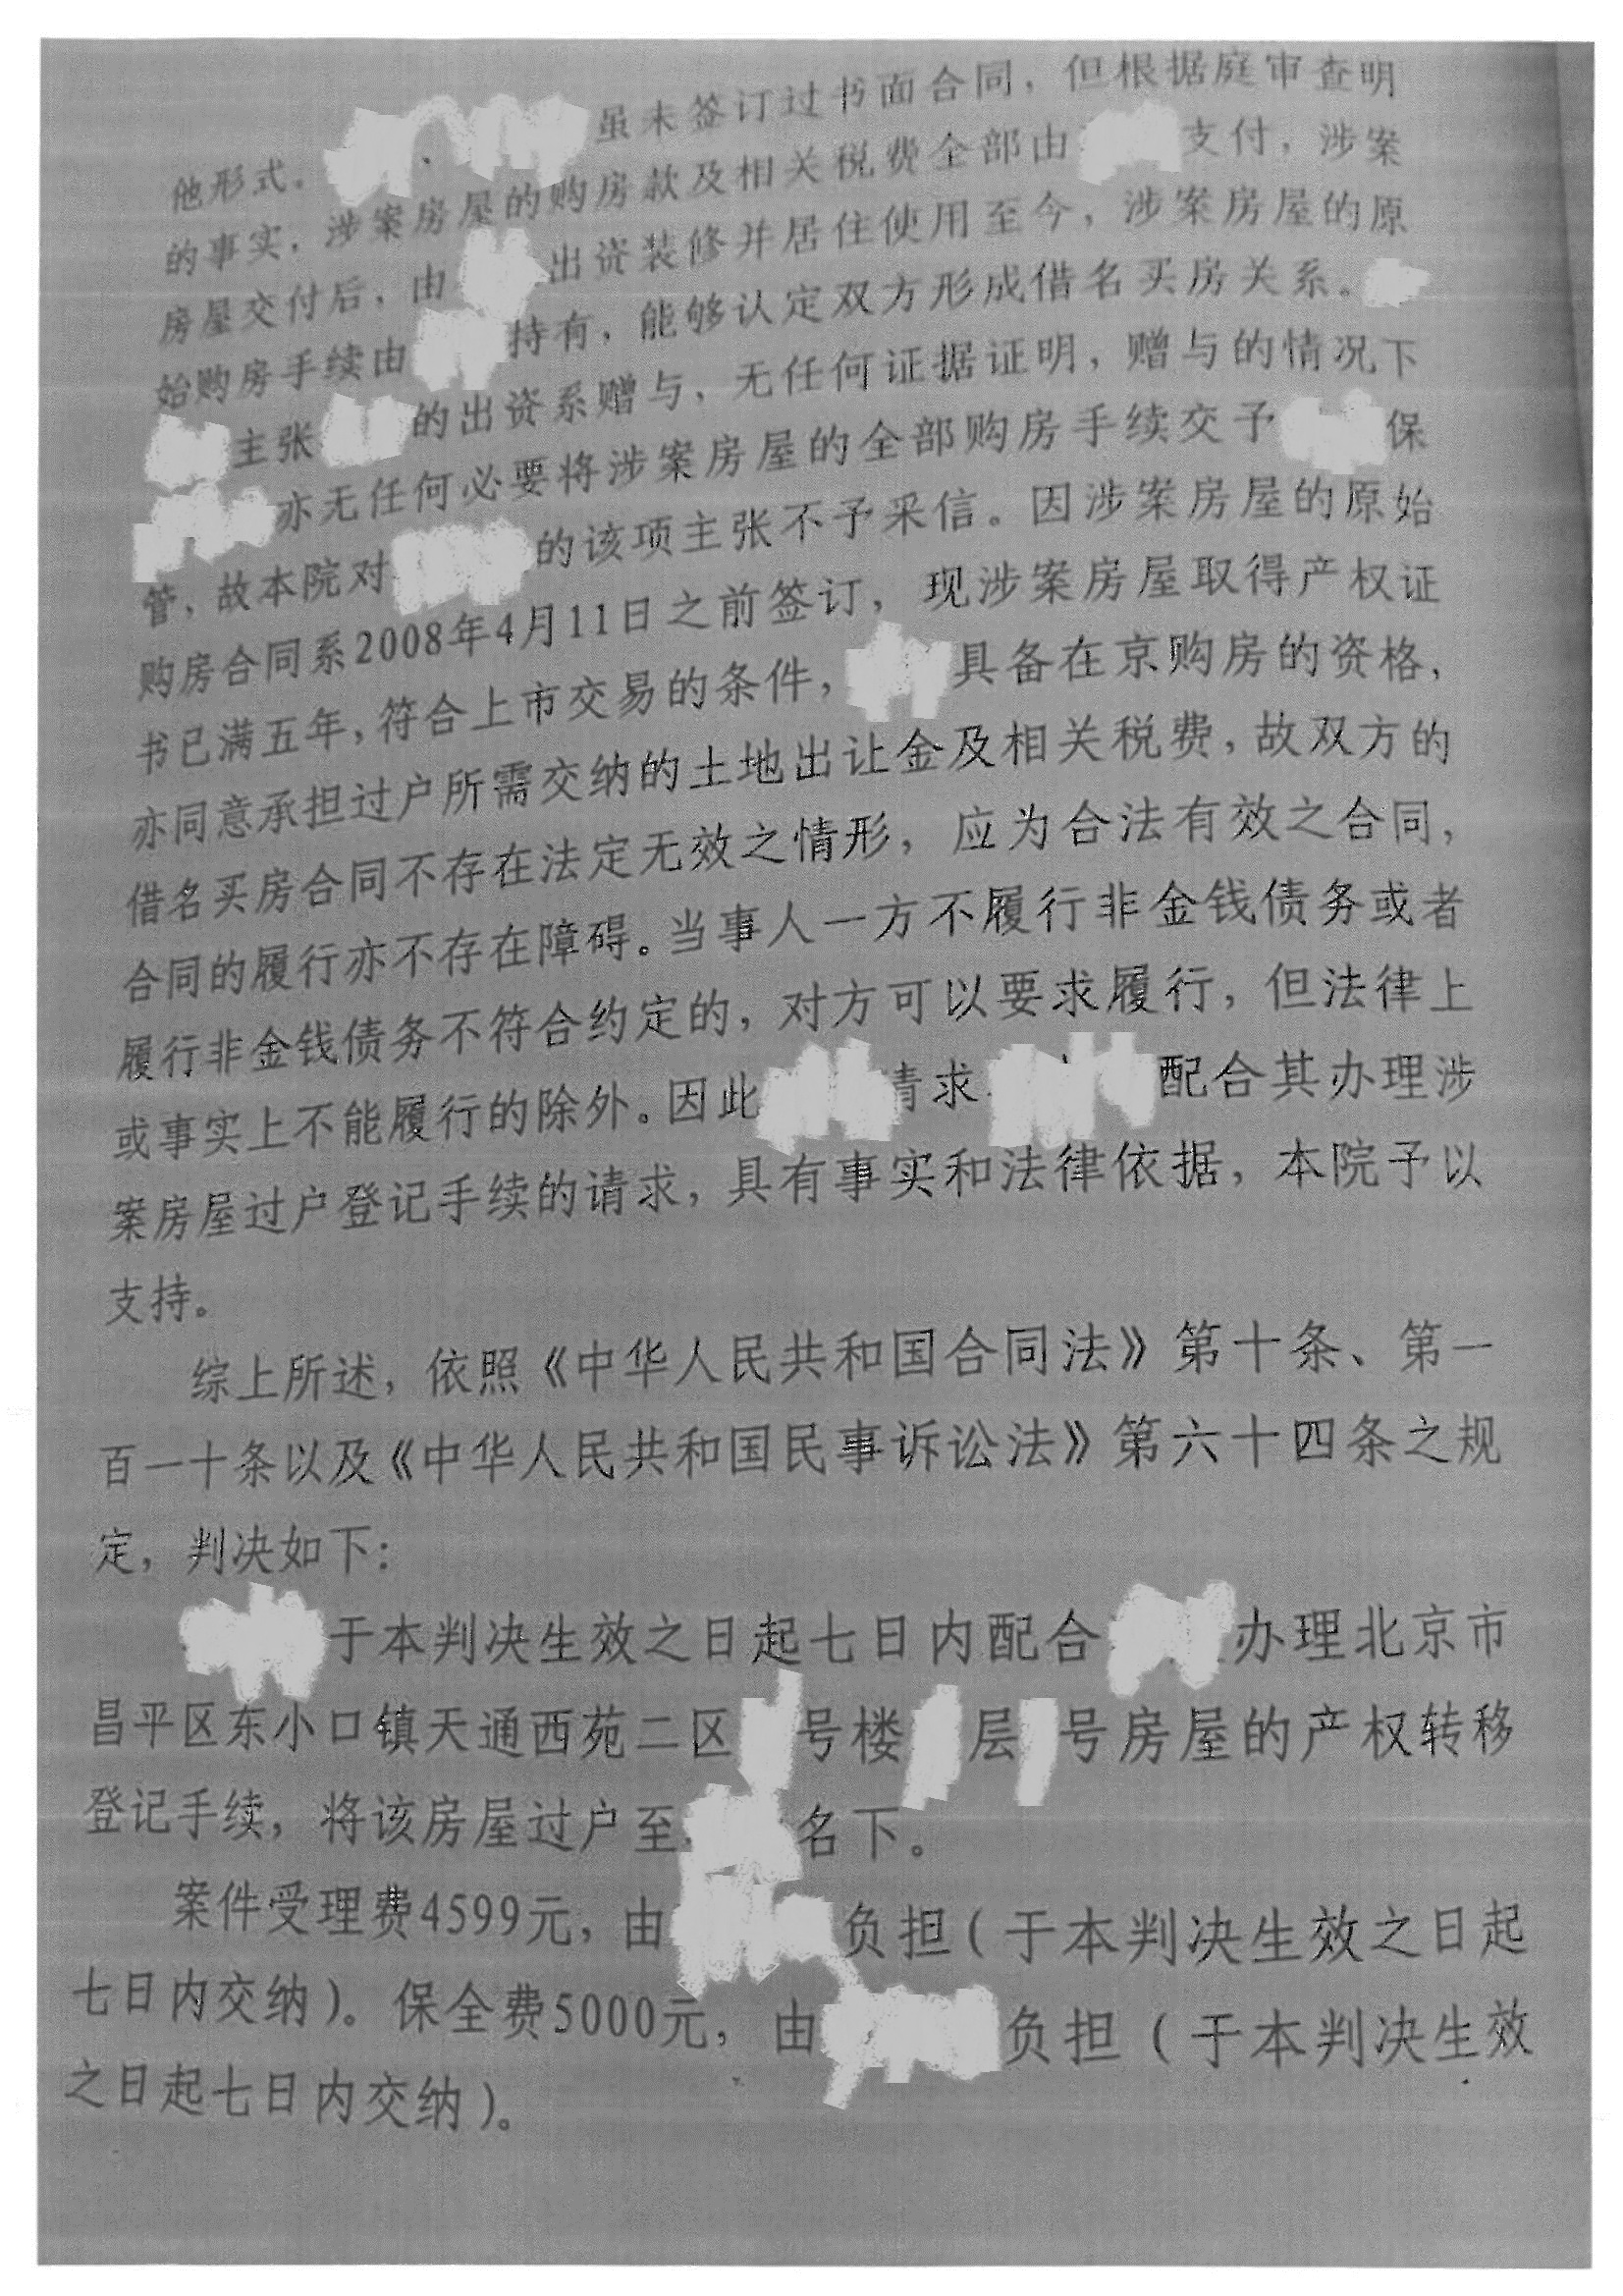 他形式。 虽未签订过书面合同，但根据庭审查明
的事实，涉案房屋的购房款及相关税费全部由 支付，涉案
房屋交付后，由 出资装修并居住使用至今，涉案房屋的原
始购房手续由 持有，能够认定双方形成借名买房关系。
主张 的出资系赠与，无任何证据证明，赠与的情况下
亦无任何必要将涉案房屋的全部购房手续交予 保
管，故本院对 的该项主张不予采信。因涉案房屋的原始
购房合同系2008年4月11日之前签订，现涉案房屋取得产权证
书已满五年，符合上市交易的条件， 具备在京购房的资格，
亦同意承担过户所需交纳的土地出让金及相关税费，故双方的
借名买房合同不存在法定无效之情形，应为合法有效之合同，
合同的履行亦不存在障碍。当事人一方不履行非金钱债务或者
履行非金钱债务不符合约定的，对方可以要求履行，但法律上
或事实上不能履行的除外。因此 请求 配合其办理涉
案房屋过户登记手续的请求，具有事实和法律依据，本院予以
支持。
综上所述，依照《中华人民共和国合同法》第十条、第一
百一十条以及《中华人民共和国民事诉讼法》第六十四条之规
定，判决如下：
于本判决生效之日起七日内配合 办理北京市
昌平区东小口镇天通西苑二区 号楼 层 号房屋的产权转移
登记手续，将该房屋过户至 名下。
案件受理费4599元，由 负担（于本判决生效之日起
七日内交纳）。保全费5000元，由 负担（于本判决生效
之日起七日内交纳）。